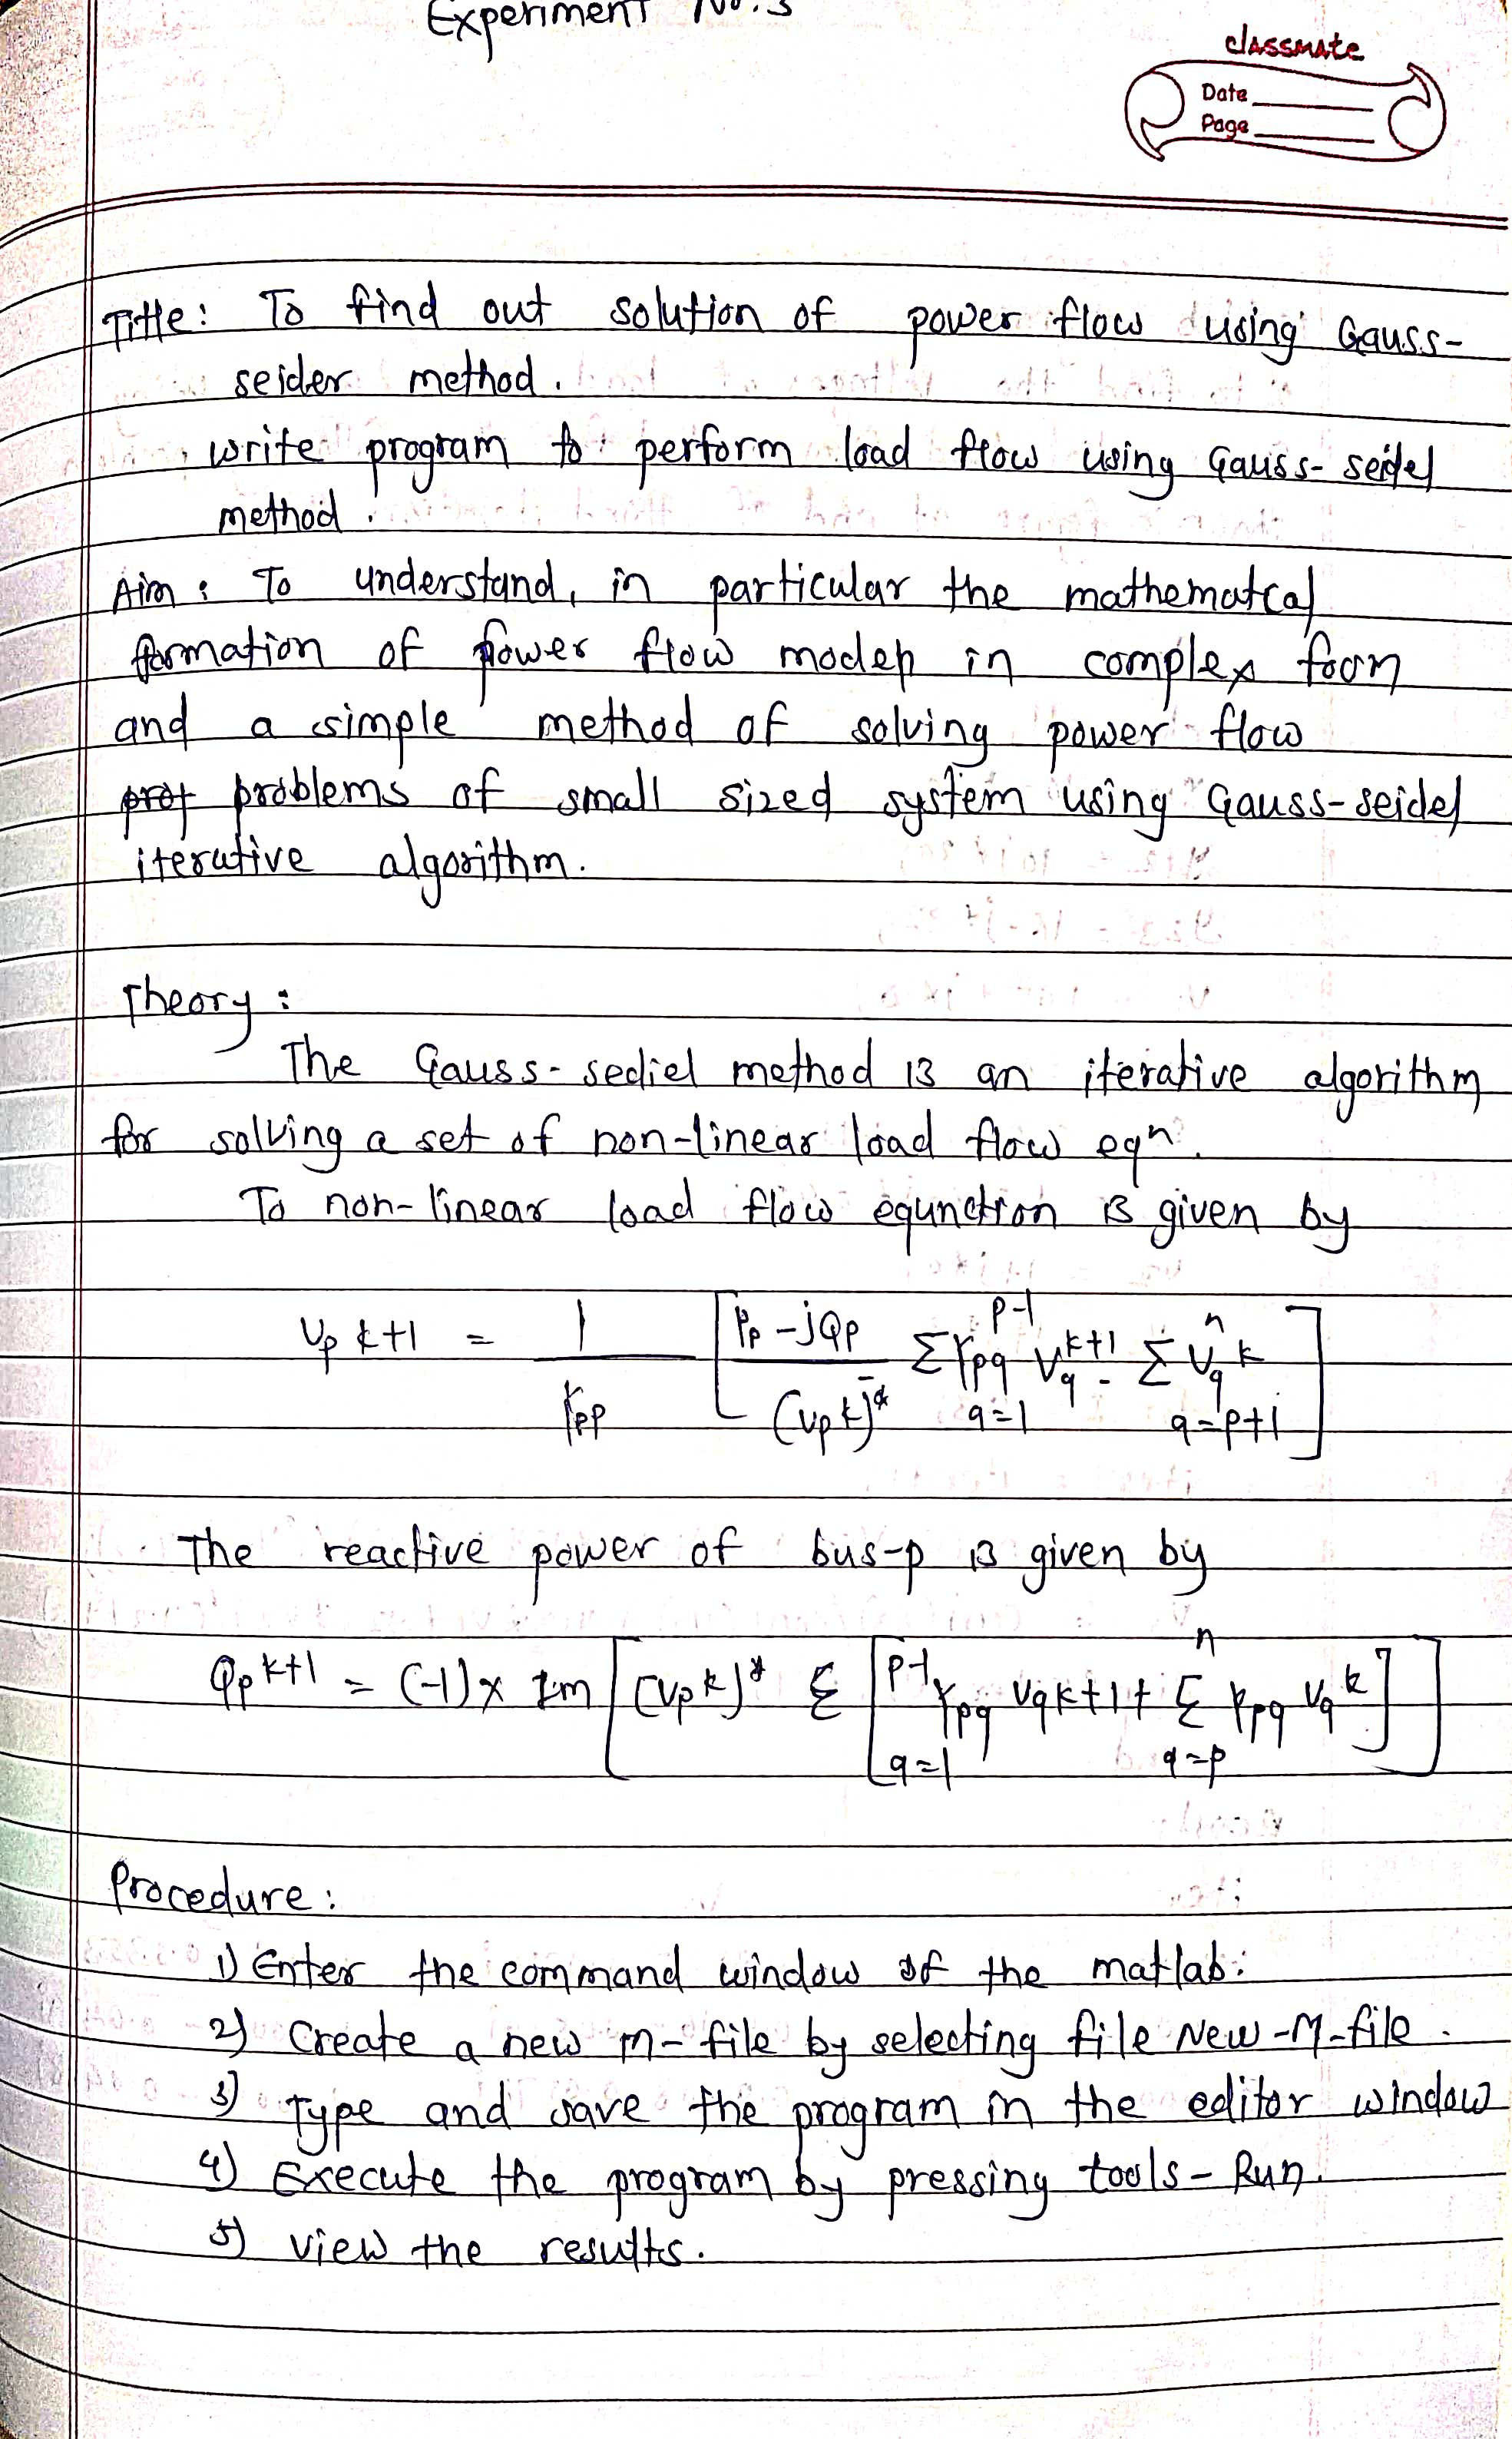 Experiment No. 3
classmate
Date
Page
Title: To find out solution of power flow using Gauss-
seider method.
write program to perform load flow using Gauss-seidel
method.
Aim: To understand, in particular the mathematcal
formation of power flow model in complex form
and a simple method of solving power flow
prof problems of small sized system using Gauss-seidel
iterative algorithm.
Theory:
The Gauss-sediel method is an iterative algorithm
for solving a set of non-linear load flow eqn.
To non-linear load flow equnction is given by
Vp k+1 = 1/Ypp [ (Pp - jQp)/(Vp k)* - Σ_{q=1}^{p-1} Ypq Vq^{k+1} - Σ_{q=p+1}^{n} Vq^k ]
The reactive power of bus-p is given by
Qp k+1 = (-1) x Im [ (Vp k)* Σ [ _{q=1}^{p-1} Ypq Vq k+1 + Σ_{q=p}^{n} Ypq Vq^k ] ]
Procedure:
1) Enter the command window of the matlab.
2) Create a new m-file by selecting file New-M-file.
3) Type and save the program in the editor window
4) Execute the program by pressing tools-Run.
5) view the results.